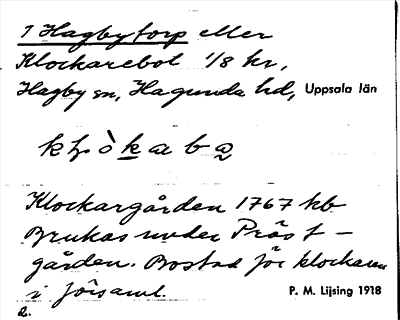 1 Hagbytorp eller
Klockarebol 1/8 kr,
Hagby sn, Hagunda hd, Uppsala län
Klockargården 1767 kb
Brukas under Präst-
gården. Bostad för klockaren
i församl. P. M. Lijsing 1918